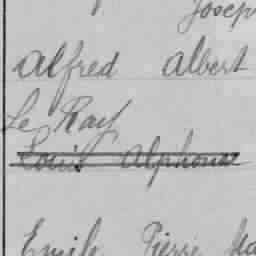 Joseph
Alfred Albert
Le Ray
Louis Alphonse
Emile Pierre Ma